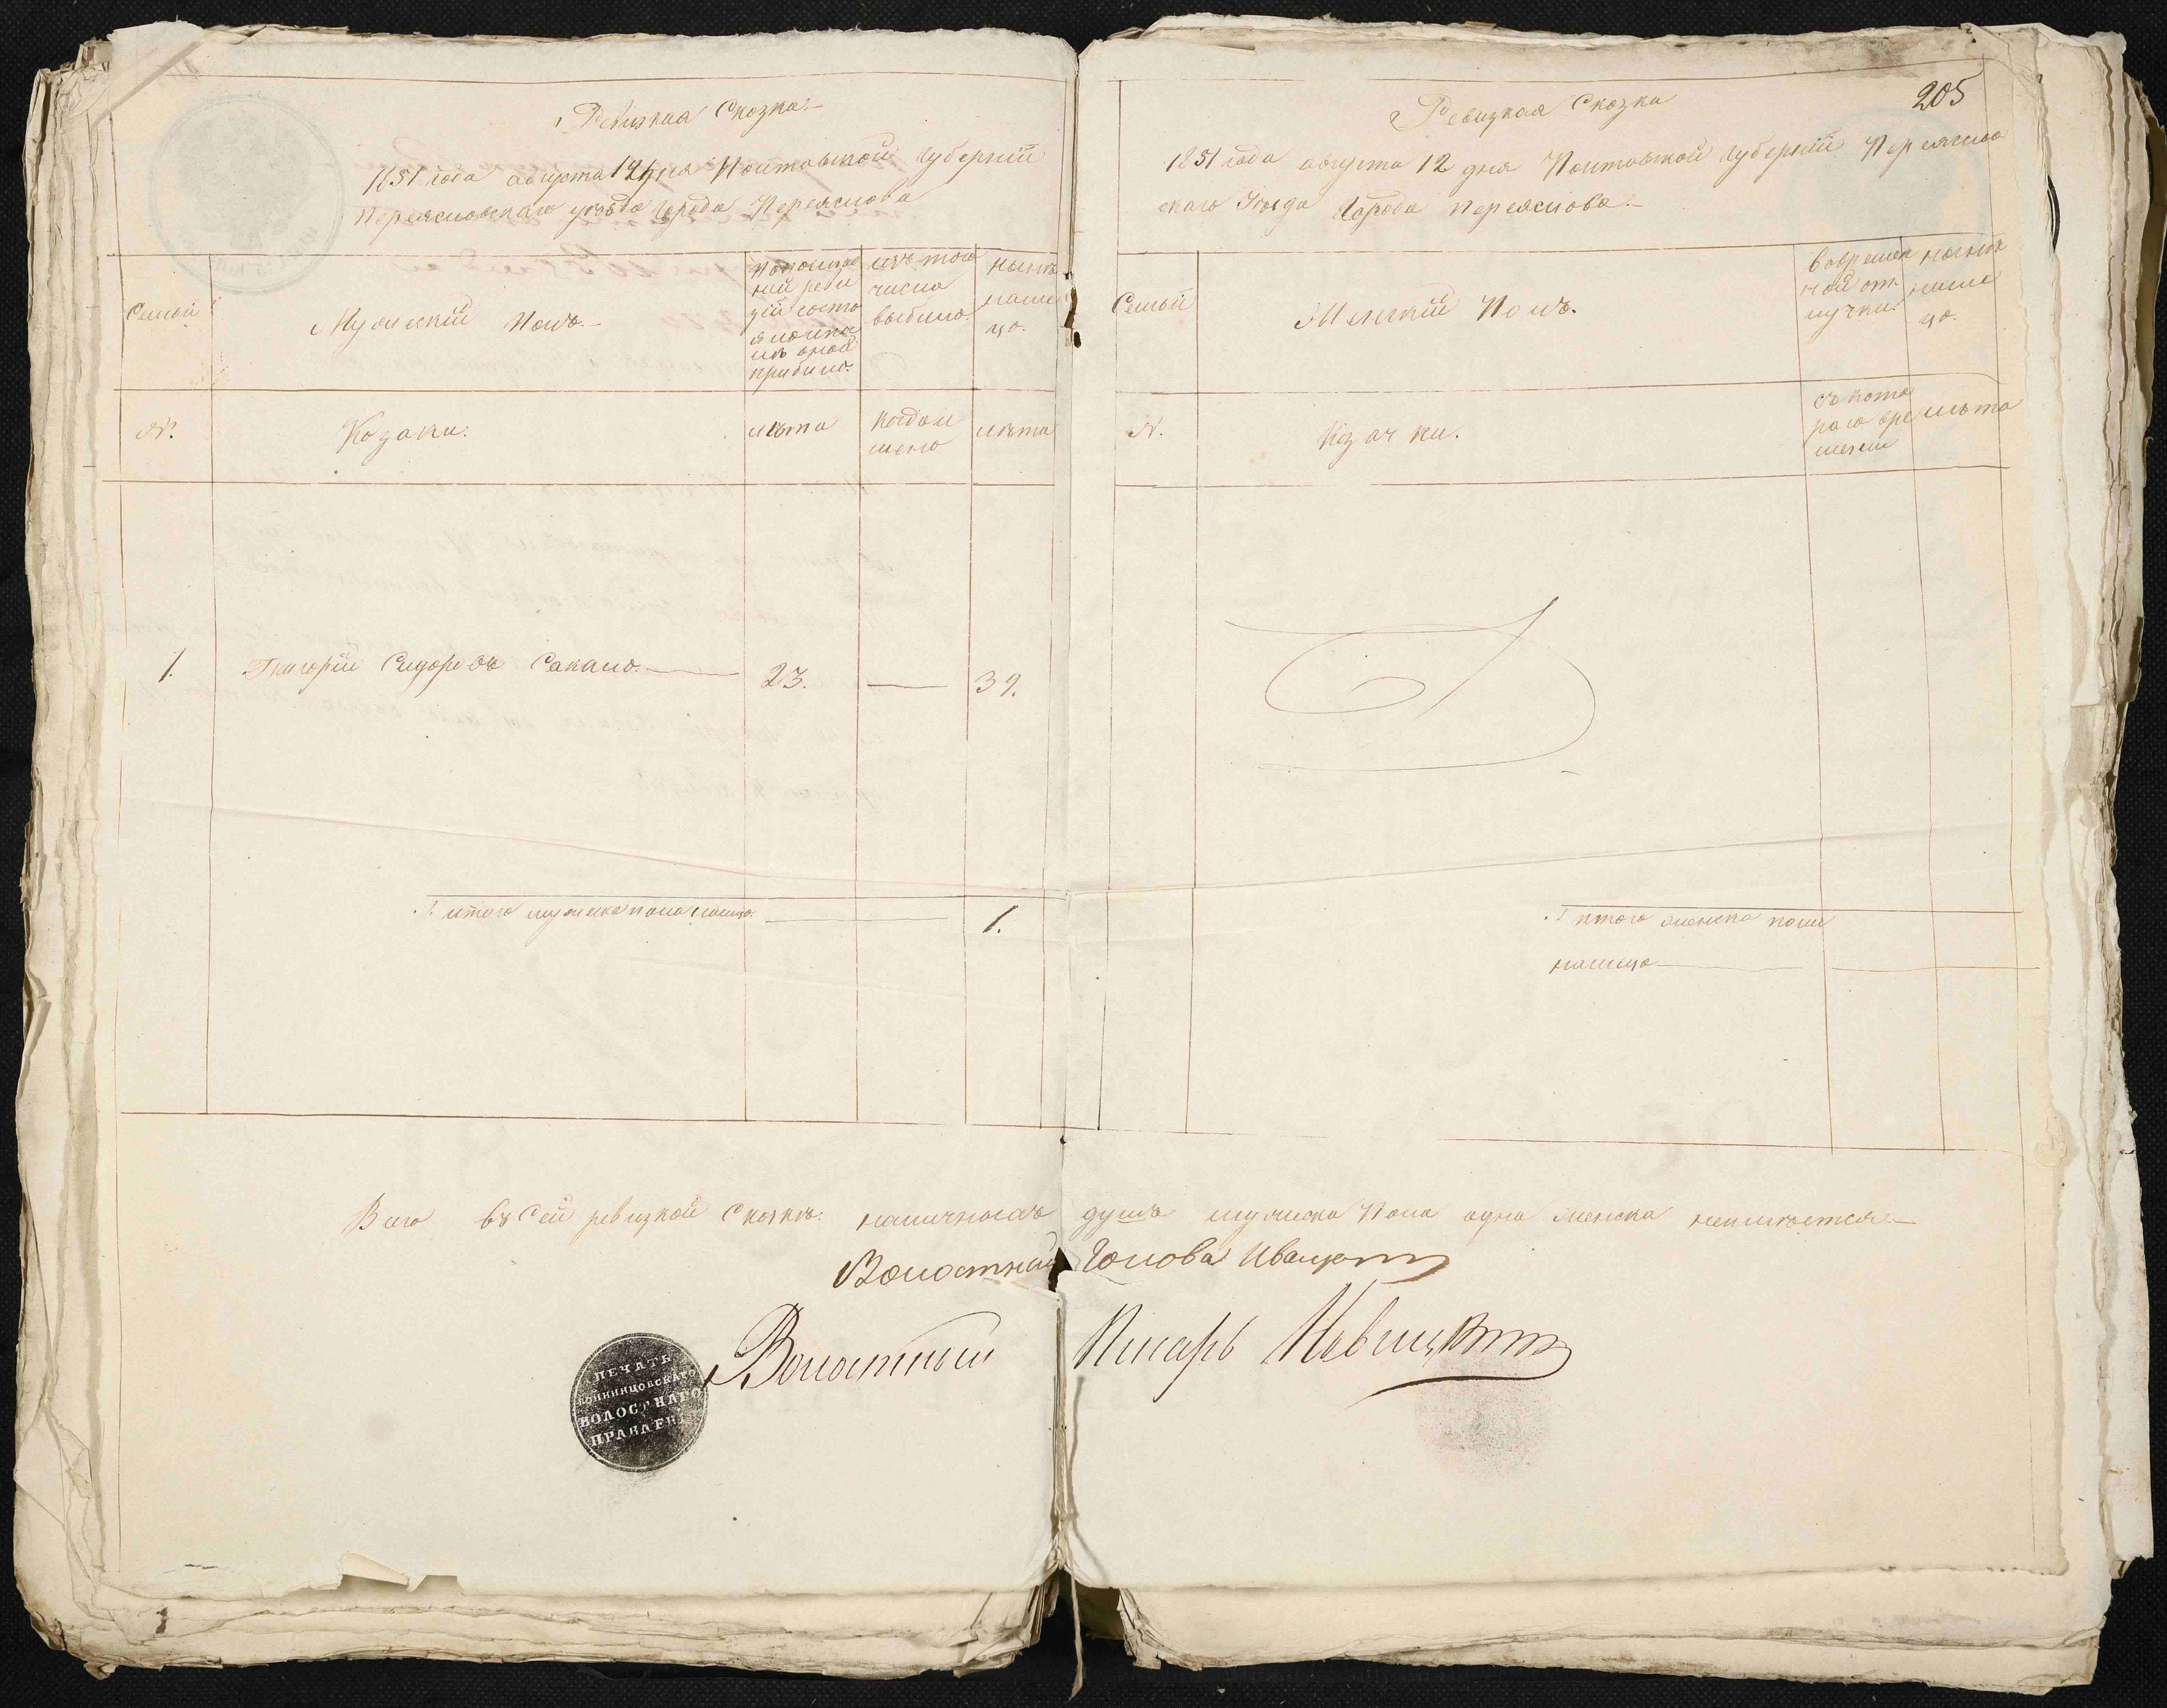 Ревизкиа Сказка.
1851 года августа 12 дня Полтавской губернiи
Переясловскаго уезда города Переяслова
Семьи
Мужескiй Полъ.
По последней ревизiи состояло и после оной прибыло.
изъ того числа выбыло.
Ныне на лицо.
№.
Козаки.
лѣта
Когда именно
лѣта
1.
Григорiй Сидоровъ Сакало.
23.
39.
Итого мужеска пола налицо
1.
205
Ревизкая Сказка
1851 года августа 12 дня Полтавской губернiи Переяслов
скаго Уѣзда города Переяслова.
Семьи
Женскiй Полъ.
Во времен
ной от
лучки.
Нынѣ
нали
цо.
№.
Козачки.
съ кото
раго вре
мени
лѣта
Итого женска пола
налицо
Всего въ сей ревизкой сказкѣ: наличныхъ душъ мужеска Пола одна женска неимѣется.
Волостный Голова
Волостный Писарь
ПЕЧАТЬ
ВОЛОСТНАГО
ПРАВЛЕН